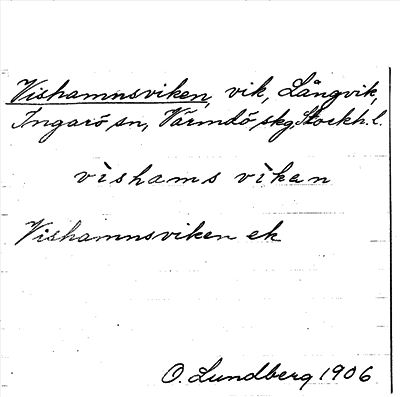 Vishamnsviken, vik, Långvik,
Ingarö sn, Värmdö skg Stockh. l.
vìshams vìkan
Vishamnsviken ek
O. Lundberg 1906